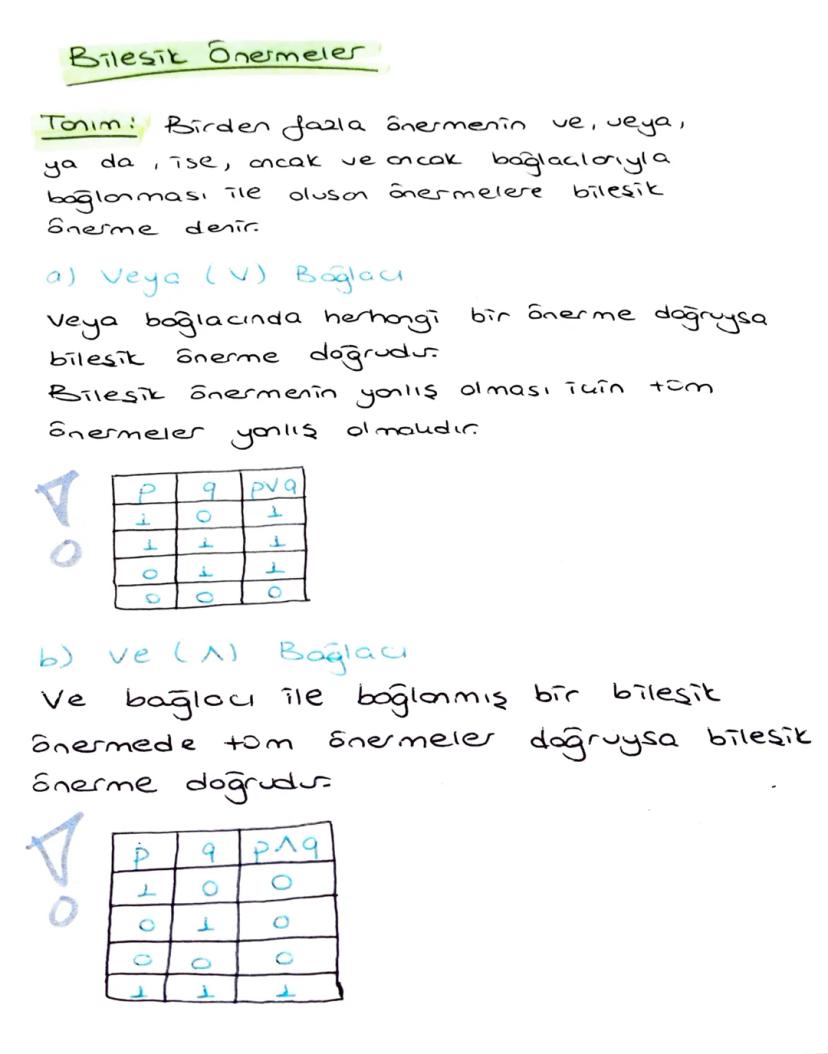 Bileşik Önermeler
Tanım: Birden fazla önermenin ve, veya,
ya da, ise, ancak ve ancak bağlaçlarıyla
bağlanması ile oluşan önermelere bileşik
önerme denir.
a) Veya (V) Bağlacı
Veya bağlacında herhangi bir önerme doğruysa
bileşik önerme doğrudur.
Bileşik önermenin yanlış olması için tüm
önermeler yanlış olmalıdır.
p q pVq
1 0 1
1 1 1
0 1 1
0 0 0
b) Ve (Λ) Bağlacı
Ve bağlacı ile bağlanmış bir bileşik
önermede tüm önermeler doğruysa bileşik
önerme doğrudur.
p q pΛq
1 0 0
0 1 0
0 0 0
1 1 1